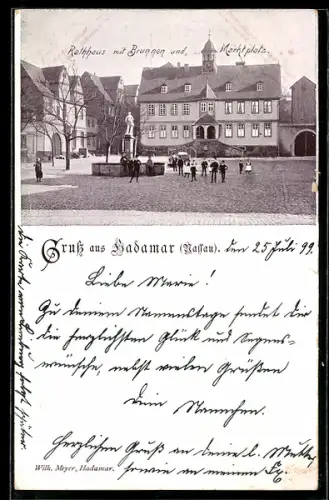 Rathhaus mit Brunnen und Marktplatz.
Gruß aus Hadamar (Nassau). den 25 Juli 99.
Liebe Marie!
Zu deinem Namenstage sendet dir
die herzlichsten Glück und Segens-
wünsche, nebst vielen Grüßen
dein Mannchen.
Herzlichen Gruß an deine l. Mutter,
sowie an meinen
Wilh. Meyer, Hadamar.